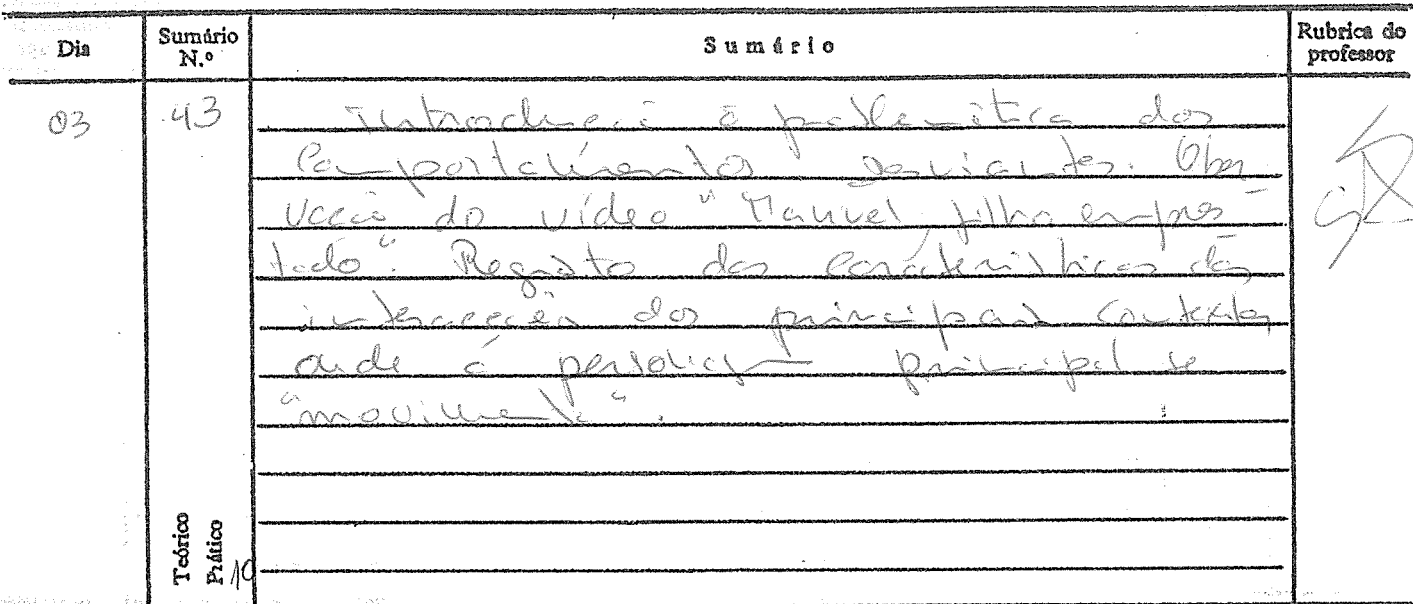 Dia
Sumário N.º
Sumário
Rubrica do professor
03
43
Introdução à problemática dos
Comportamentos desviantes. Obser-
vação do vídeo "Manuel, filho empres-
tado". Registo das características das
interacções dos principais contextos
onde a personagem principal se
"movimenta".
Teórico
Prático 10